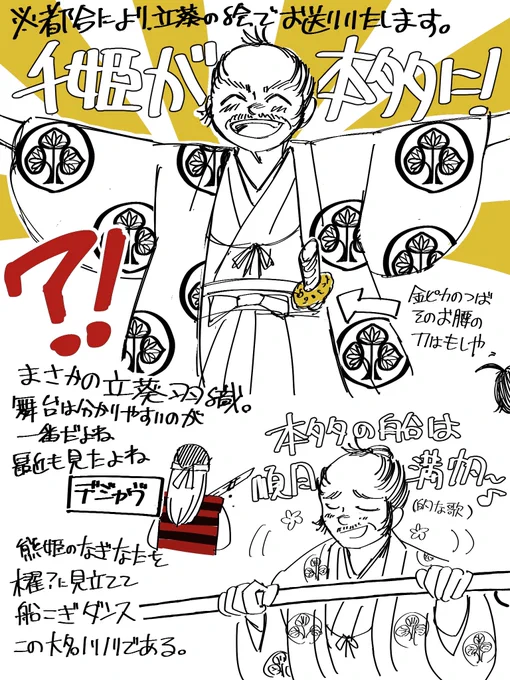 ※都合により、立葵の絵でお送りいたします。
千姫が
本多に!
?!
金ピカのつば
そのお腰の
刀はもしや、
まさかの立葵羽織。
舞台は分かりやすいのが
一番だよね
最近も見たよね
デジャヴ
本多の船は
順風満帆~♪
(的な歌)
熊姫のなぎなたを
櫂?に見立てて
船こぎダンス
この大名ノリノリである。